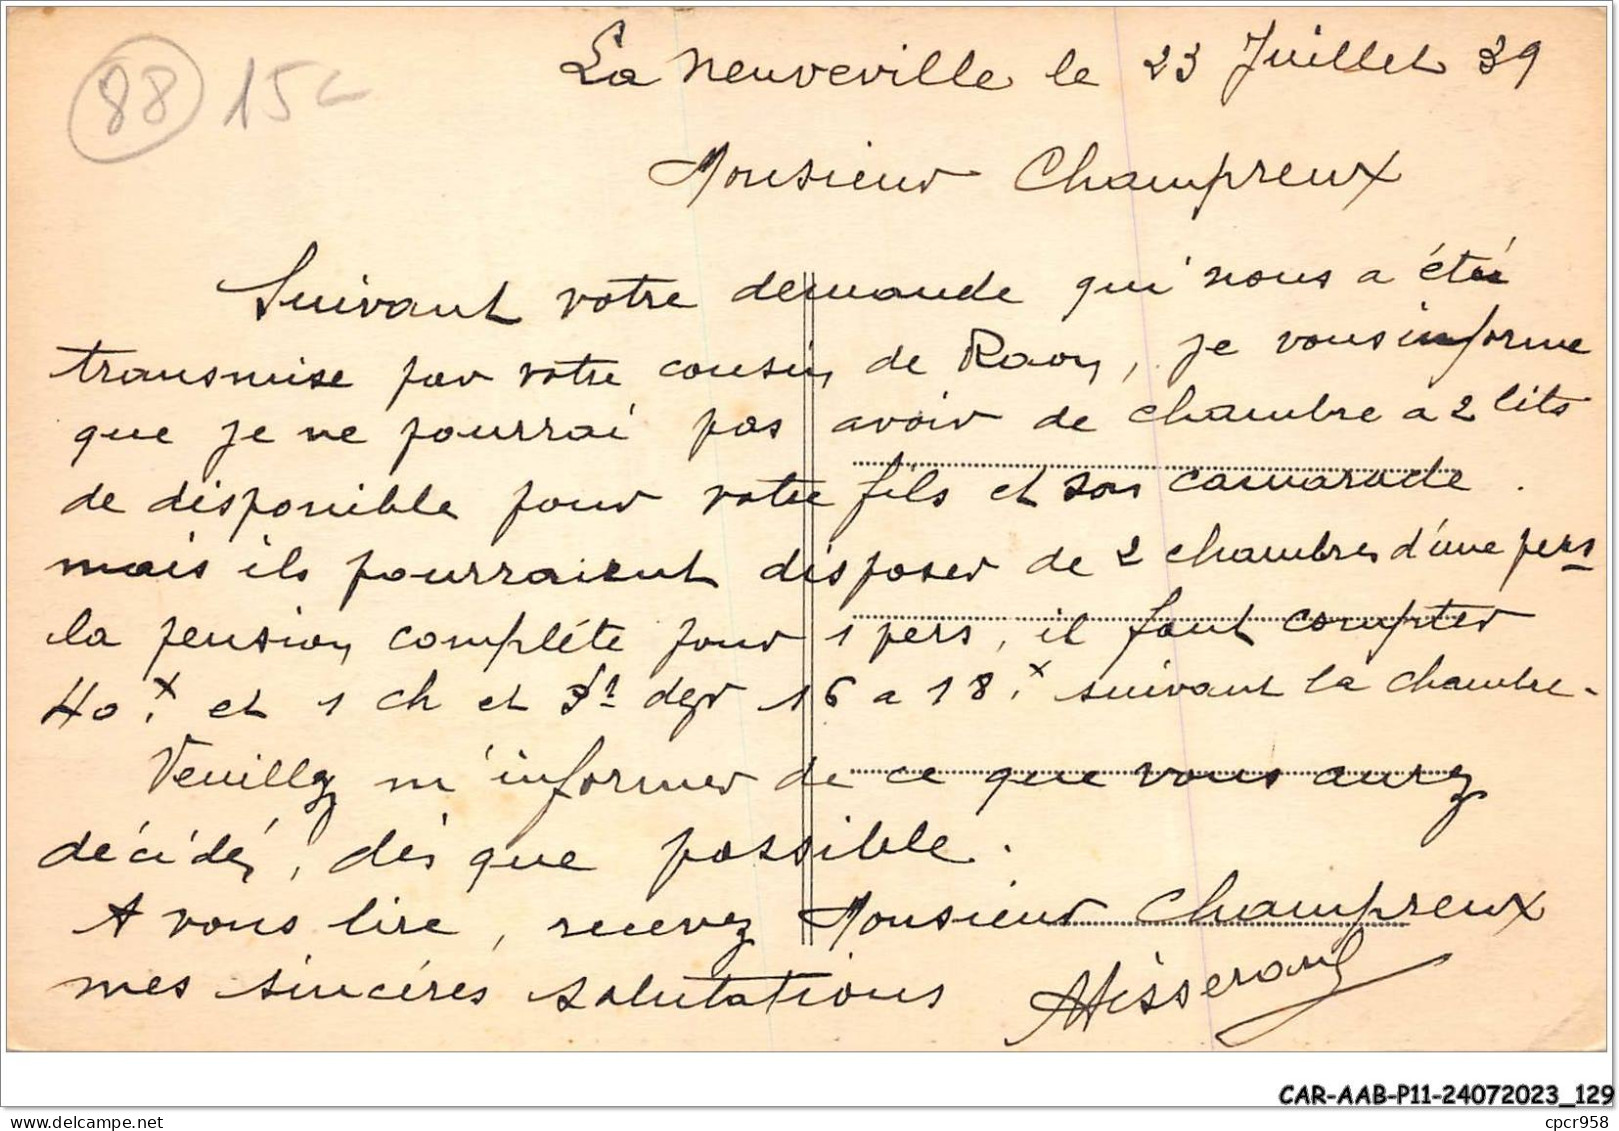 88 15c
La Neuveville le 23 Juillet 39
Monsieur Champreux
Suivant votre demande qui nous a été
transmise par votre cousin de Raon, je vous informe
que je ne pourrai pas avoir de chambre a 2 lits
de disponible pour votre fils et son camarade.
mais ils pourraient disposer de 2 chambres d'une pers
la pension compléte pour 1 pers, il faut compter
40.x et 1 ch et dej 16 a 18.x suivant la chambre-
Veuillez m'informer de ce que vous aurez
décidés, dès que possible.
A vous lire, recevez Monsieur Champreux
mes sincéres salutations
CAR-AAB-P11-24072023_129
cpcr958